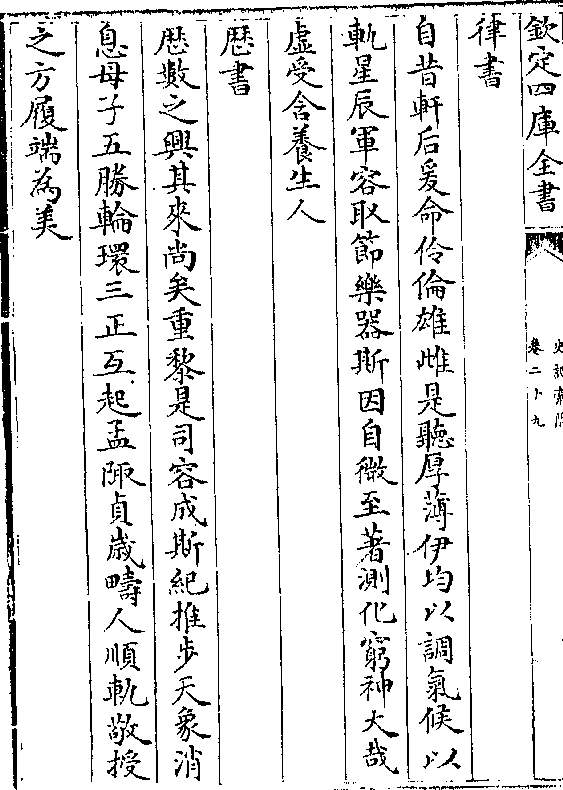 欽定四庫全書
史記索隱
卷二十九
律書
自昔軒后爰命伶倫雄雌是聽厚薄伊均以調氣候以
軌星辰軍容取節樂器斯因自微至著測化窮神大哉
虛受含養生人
歴書
歴數之興其來尚矣重黎是司容成斯紀推步天象消
息母子五勝輪環三正互起孟陬貞歳疇人順軌敬授
之方履端為美